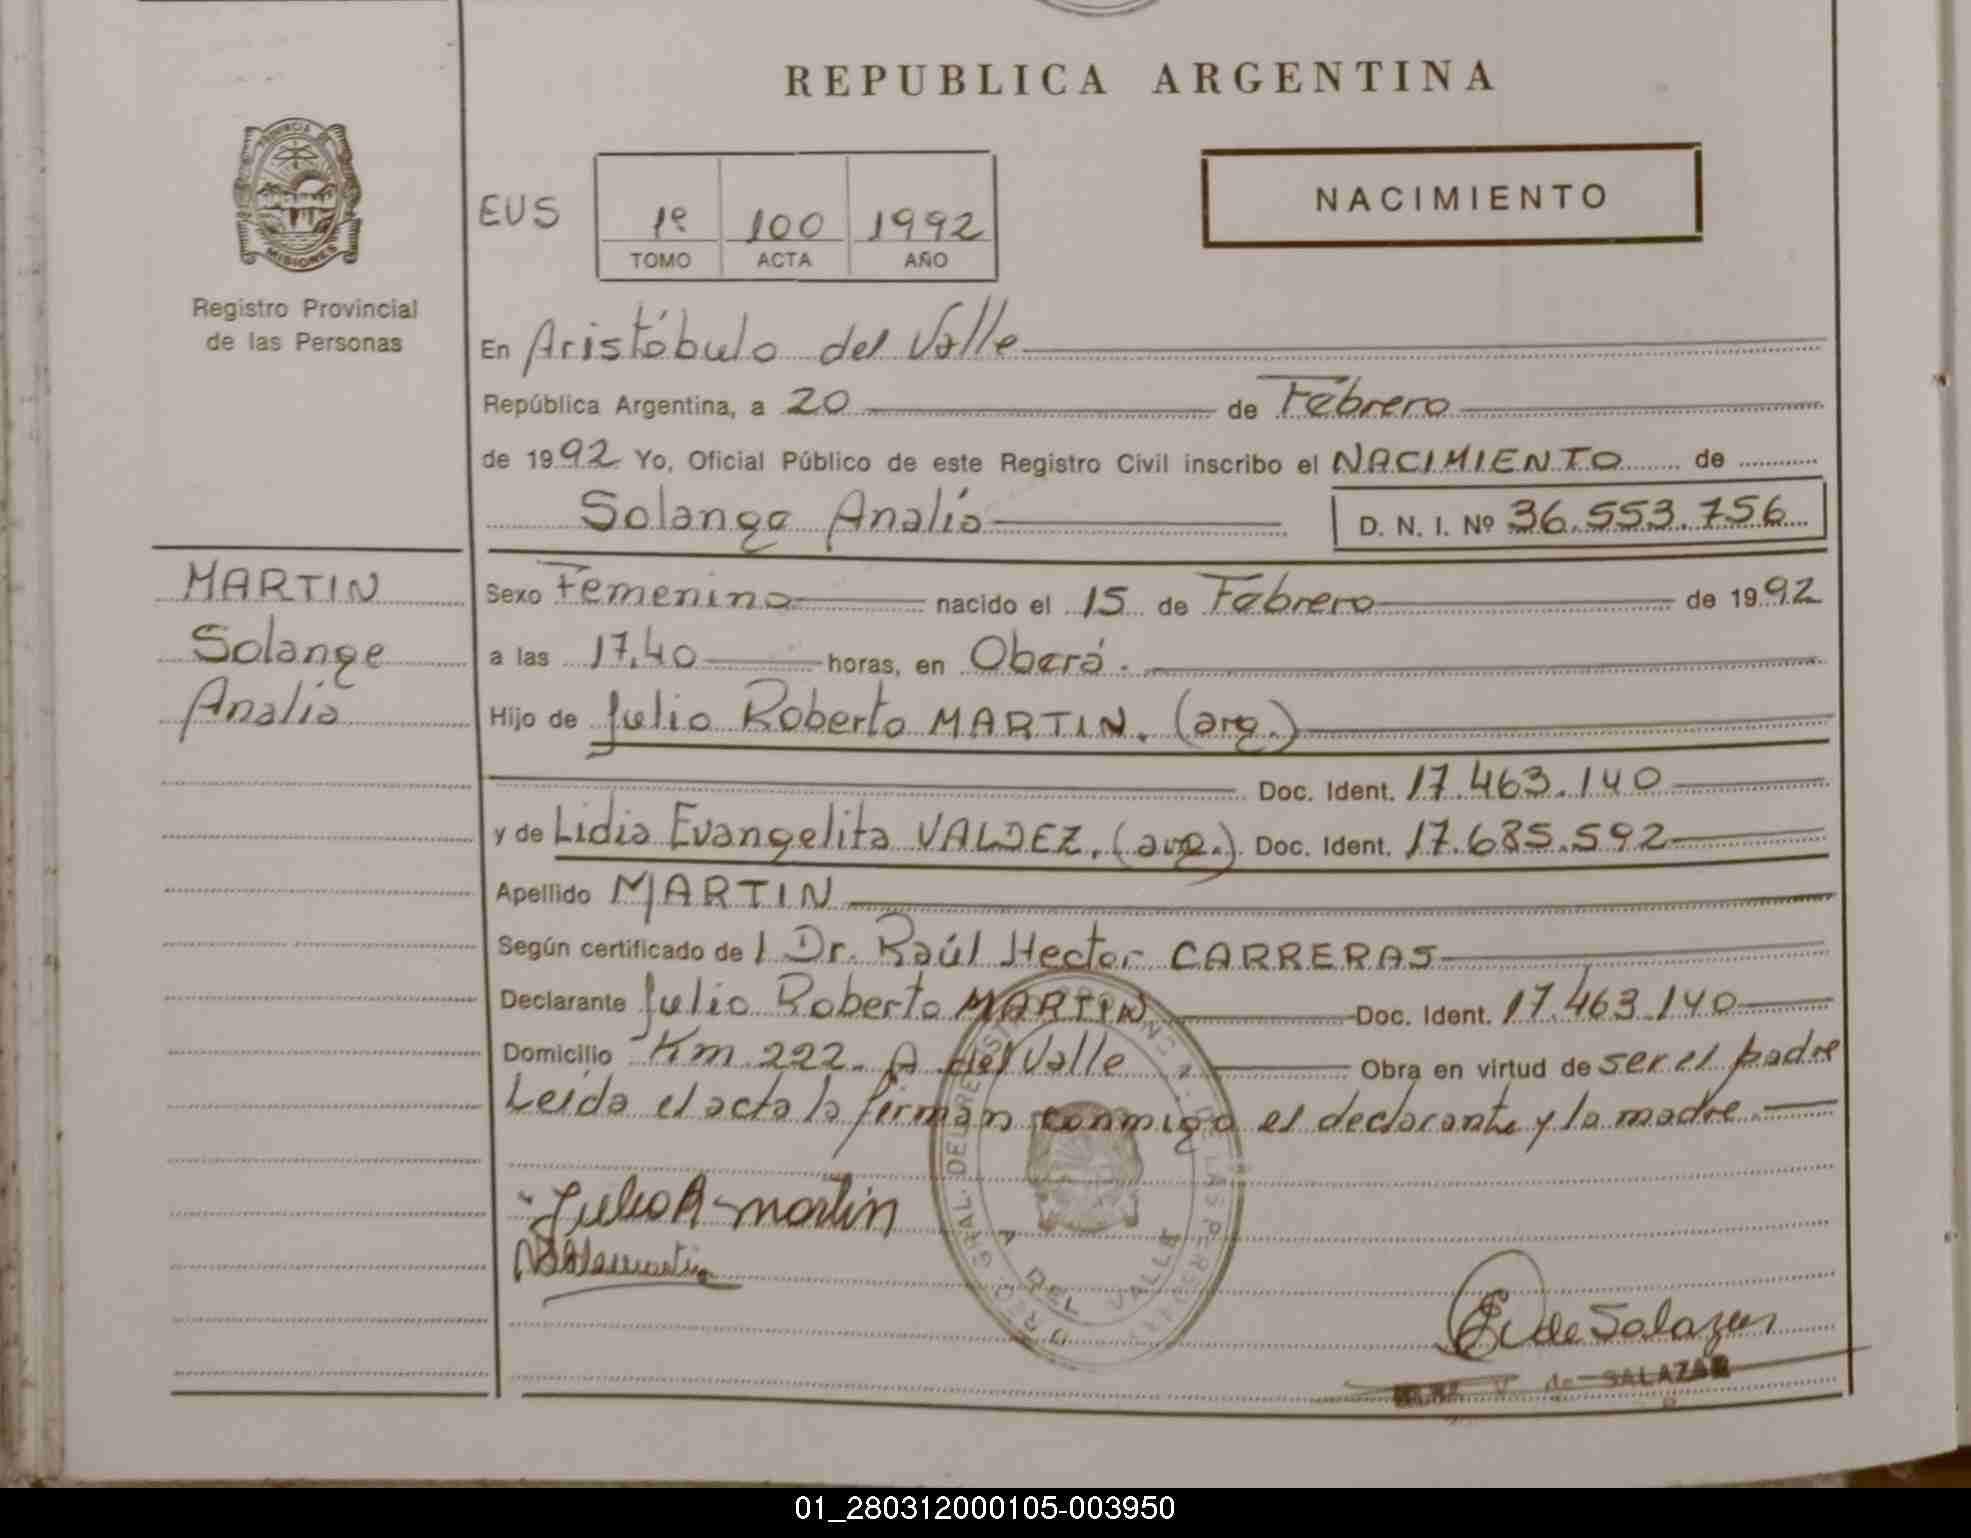 REPUBLICA ARGENTINA
PROVINCIA
MISIONES
Registro Provincial
de las Personas
EUS
1º 100 1992
TOMO ACTA AÑO
NACIMIENTO
En Aristóbulo del Valle
República Argentina, a 20 de Febrero
de 1992 Yo, Oficial Público de este Registro Civil inscribo el NACIMIENTO de
Solange Analía
D. N. I. Nº 36.553.756
MARTIN
Solange
Analia
Sexo Femenino nacido el 15 de Febrero de 1992
a las 17.40 horas, en Oberá.
Hijo de Julio Roberto MARTIN. (arg.)
Doc. Ident. 17.463.140
y de Lidia Evangelita VALDEZ. (arg.) Doc. Ident. 17.685.592
Apellido MARTIN
Según certificado de l Dr. Raúl Hector CARRERAS
Declarante Julio Roberto MARTIN Doc. Ident. 17.463.140
Domicilio Km 222. A. del Valle Obra en virtud de ser el padre
Leida el acta la firman conmigo el declarante y la madre.
Julio R martin
de Salazar
de SALAZAR
A. DEL VALLE
01_280312000105-003950